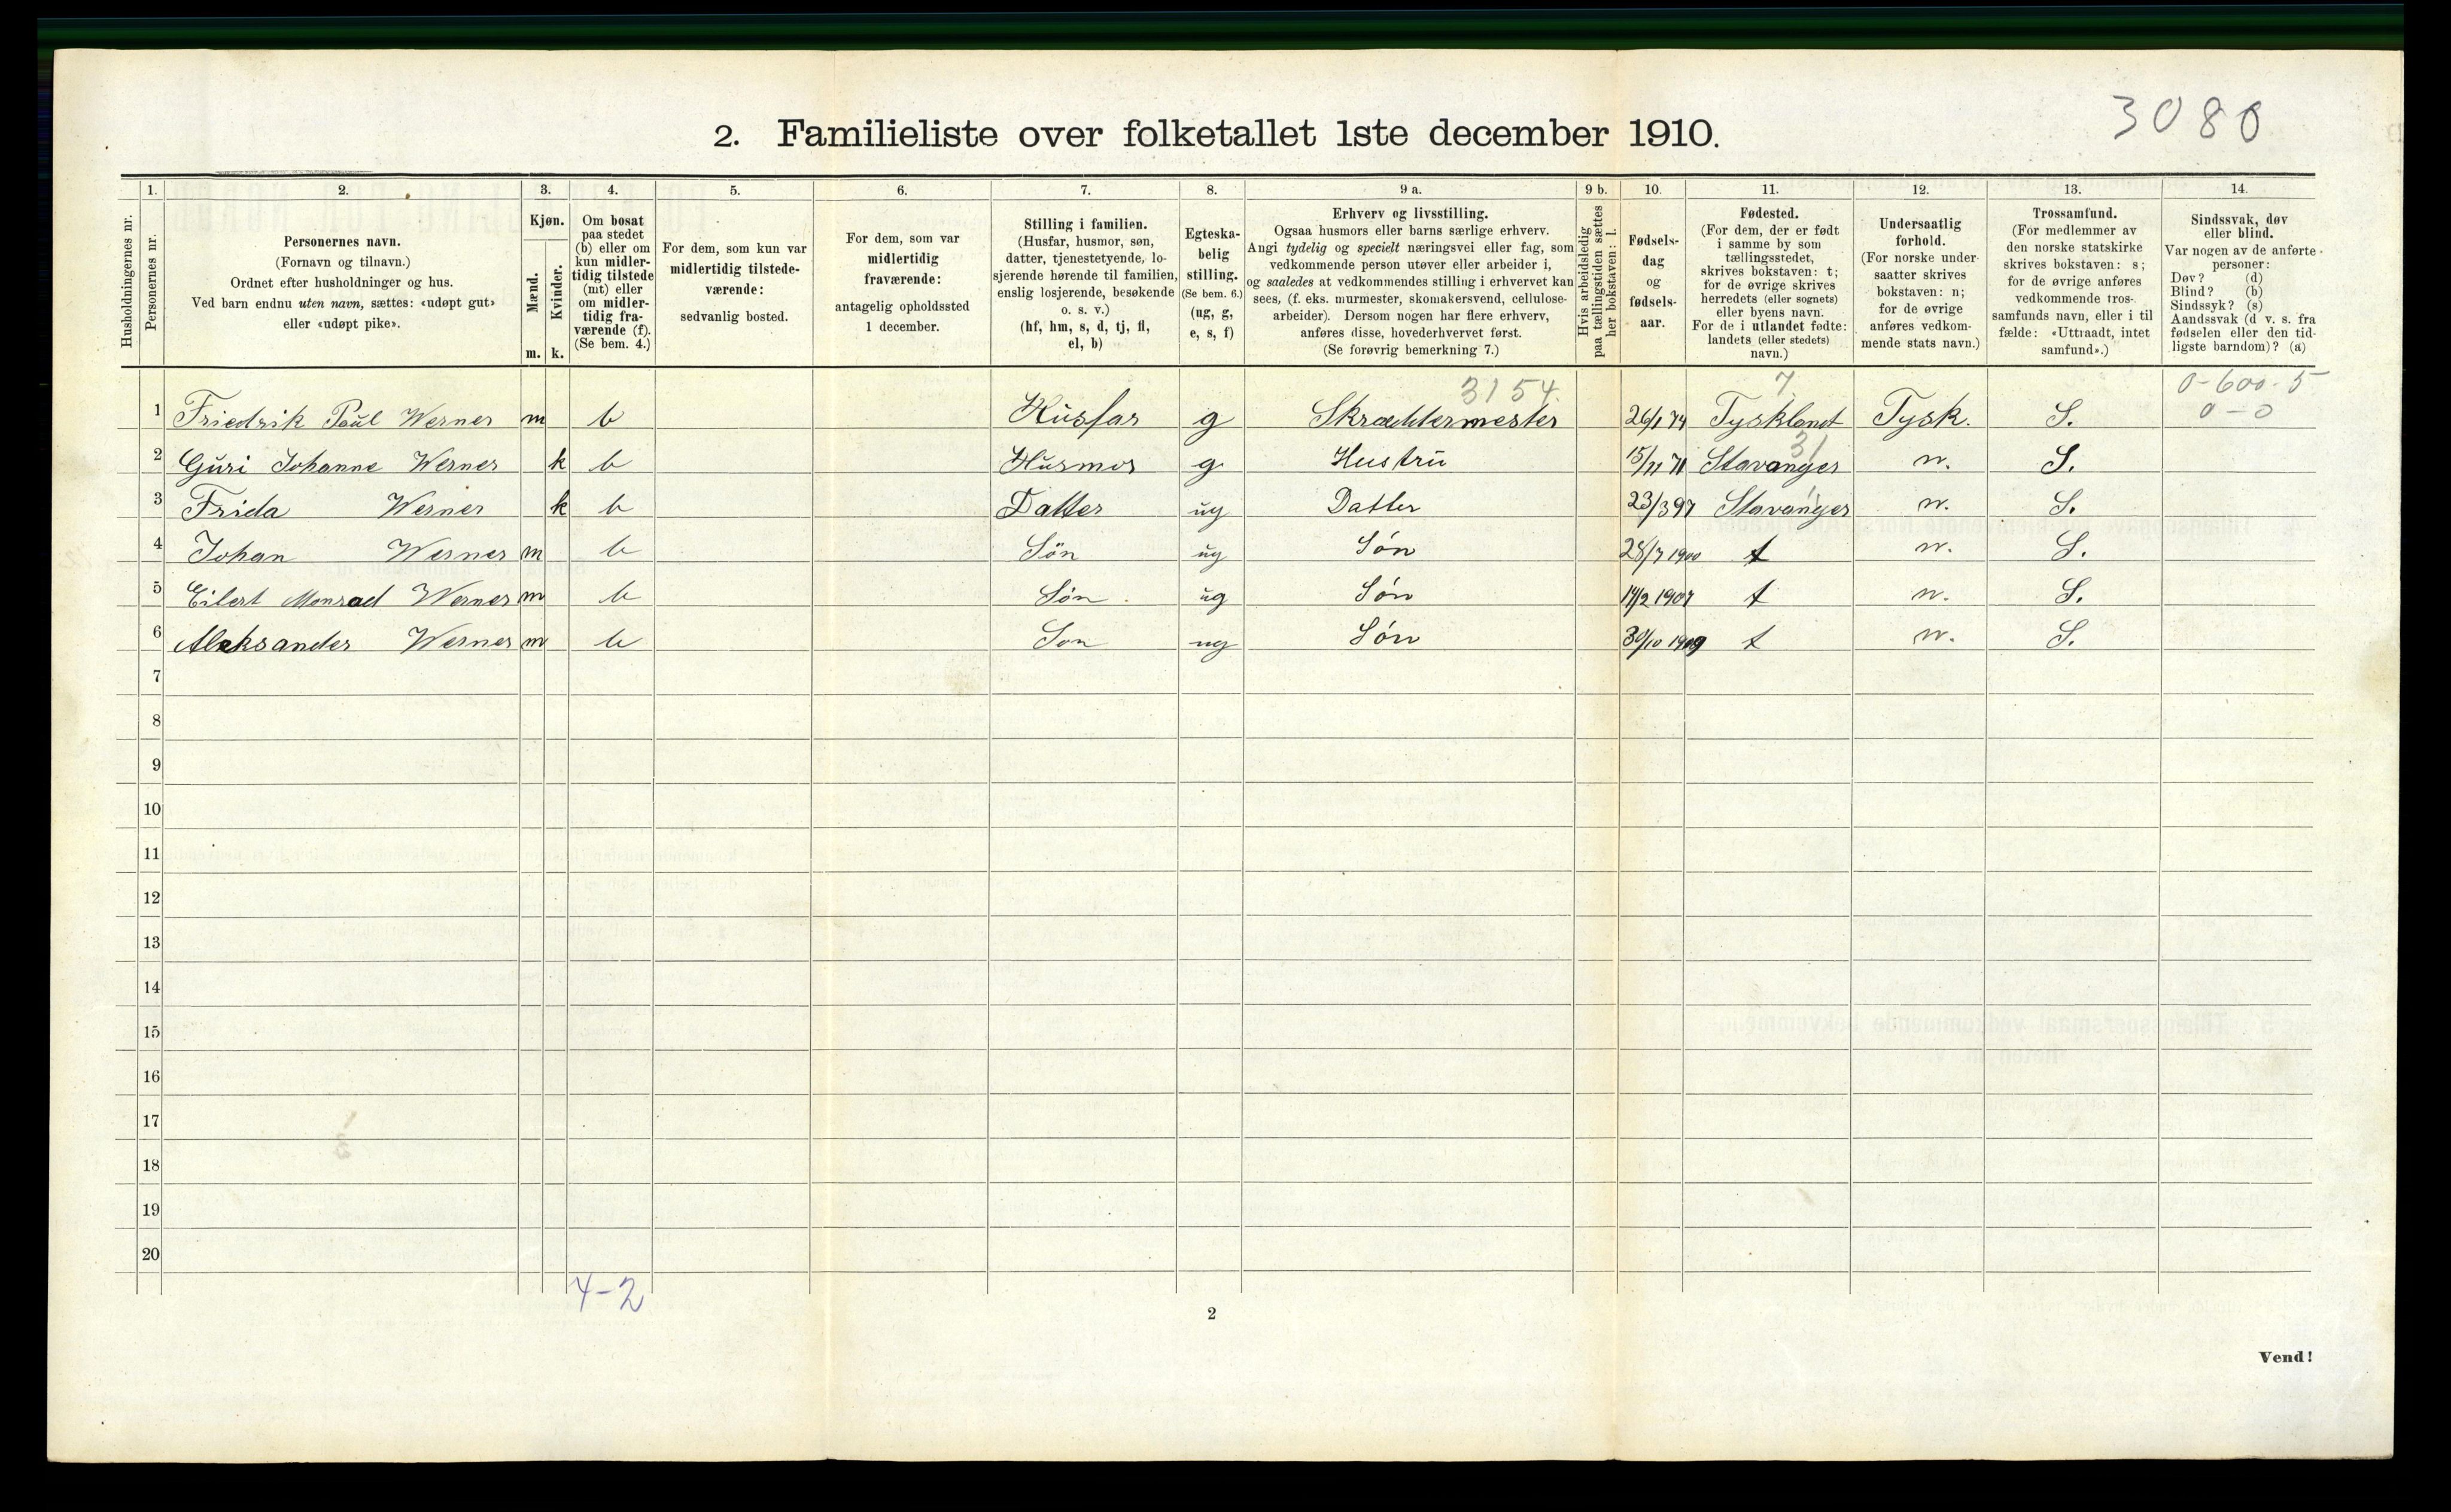 3080
2. Familieliste over folketallet 1ste december 1910.
1. 2. 3. 4. 5. 6. 7. 8. 9 a. 9 b. 10. 11. 12. 13. 14.
Husholdningernes nr.
Personernes nr.
Personernes navn.
(Fornavn og tilnavn.)
Ordnet efter husholdninger og hus.
Ved barn endnu uten navn, sættes: «udøpt gut»
eller «udøpt pike».
Kjøn.
Mænd.
Kvinder.
m. k.
Om bosat
paa stedet
(b) eller om
kun midler-
tidig tilstede
(mt) eller
om midler-
tidig fra-
værende (f).
(Se bem. 4.)
For dem, som kun var
midlertidig tilstede-
værende:
sedvanlig bosted.
For dem, som var
midlertidig
fraværende:
antagelig opholdssted
1 december.
Stilling i familien.
(Husfar, husmor, søn,
datter, tjenestetyende, lo-
sjerende hørende til familien,
enslig losjerende, besøkende
o. s. v.)
(hf, hm, s, d, tj, fl,
el, b)
Egteska-
belig
stilling.
(Se bem. 6.)
(ug, g,
e, s, f)
Erhverv og livsstilling.
Ogsaa husmors eller barns særlige erhverv.
Angi tydelig og specielt næringsvei eller fag, som
vedkommende person utøver eller arbeider i,
og saaledes at vedkommendes stilling i erhvervet kan
sees, (f. eks. murmester, skomakersvend, cellulose-
arbeider). Dersom nogen har flere erhverv,
anføres disse, hovederhvervet først.
(Se forøvrig bemerkning 7.)
Hvis arbeidsledig
paa tællingstiden sættes
her bokstaven: l.
Fødsels-
dag
og
fødsels-
aar.
Fødested.
(For dem, der er født
i samme by som
tællingsstedet,
skrives bokstaven: t;
for de øvrige skrives
herredets (eller sognets)
eller byens navn.
For de i utlandet fødte:
landets (eller stedets)
navn.)
Undersaatlig
forhold.
(For norske under-
saatter skrives
bokstaven: n;
for de øvrige
anføres vedkom-
mende stats navn.)
Trossamfund.
(For medlemmer av
den norske statskirke
skrives bokstaven: s;
for de øvrige anføres
vedkommende tros-
samfunds navn, eller i til-
fælde: «Uttraadt, intet
samfund».)
Sindssvak, døv
eller blind.
Var nogen av de anførte
personer:
Døv? (d)
Blind? (b)
Sindssyk? (s)
Aandssvak (d v. s. fra
fødselen eller den tid-
ligste barndom)? (a)
3154. 7 0-600-5
1 Friedrik Paul Werner m b Husfar g Skræddermester 26/1 74 Tyskland Tysk. S. 0-0
31
2 Guri Johanne Werner k b Husmor g Hustru 15/11 71 Stavanger n. S.
3 Frida Werner k b Datter ug Datter 23/3 97 Stavanger n. S.
4 Johan Werner m b Søn ug Søn 28/7 1900 t n. S.
5 Eilert Monrad Werner m b Søn ug Søn 14/2 1907 t n. S.
6 Aleksander Werner m b Søn ug Søn 30/10 1909 t n. S.
7
8
9
10
11
12
13
14
15
16
17
18
19
20
4-2
2
Vend!